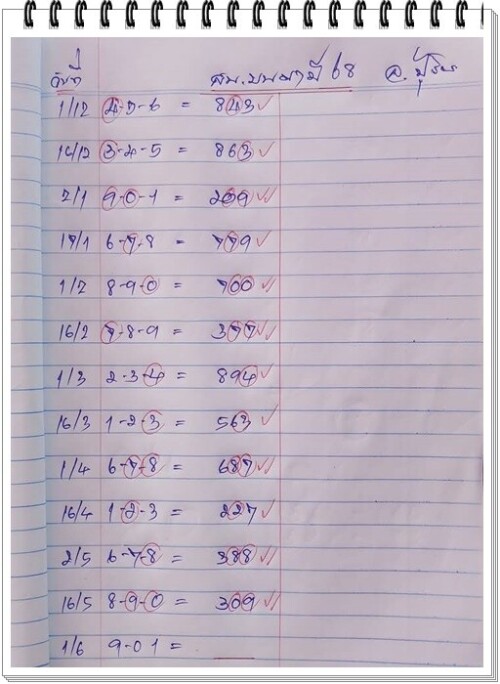 วันที่ สน.บนขวาปี 68
1/12 4-5-6 = 843
16/12 3-4-5 = 863
2/1 9-0-1 = 209
17/1 6-7-8 = 779
1/2 8-9-0 = 700
16/2 7-8-9 = 377
1/3 2-3-4 = 894
16/3 1-2-3 = 563
1/4 6-7-8 = 687
16/4 1-2-3 = 227
2/5 6-7-8 = 388
16/5 8-9-0 = 309
1/6 9-0 1 =